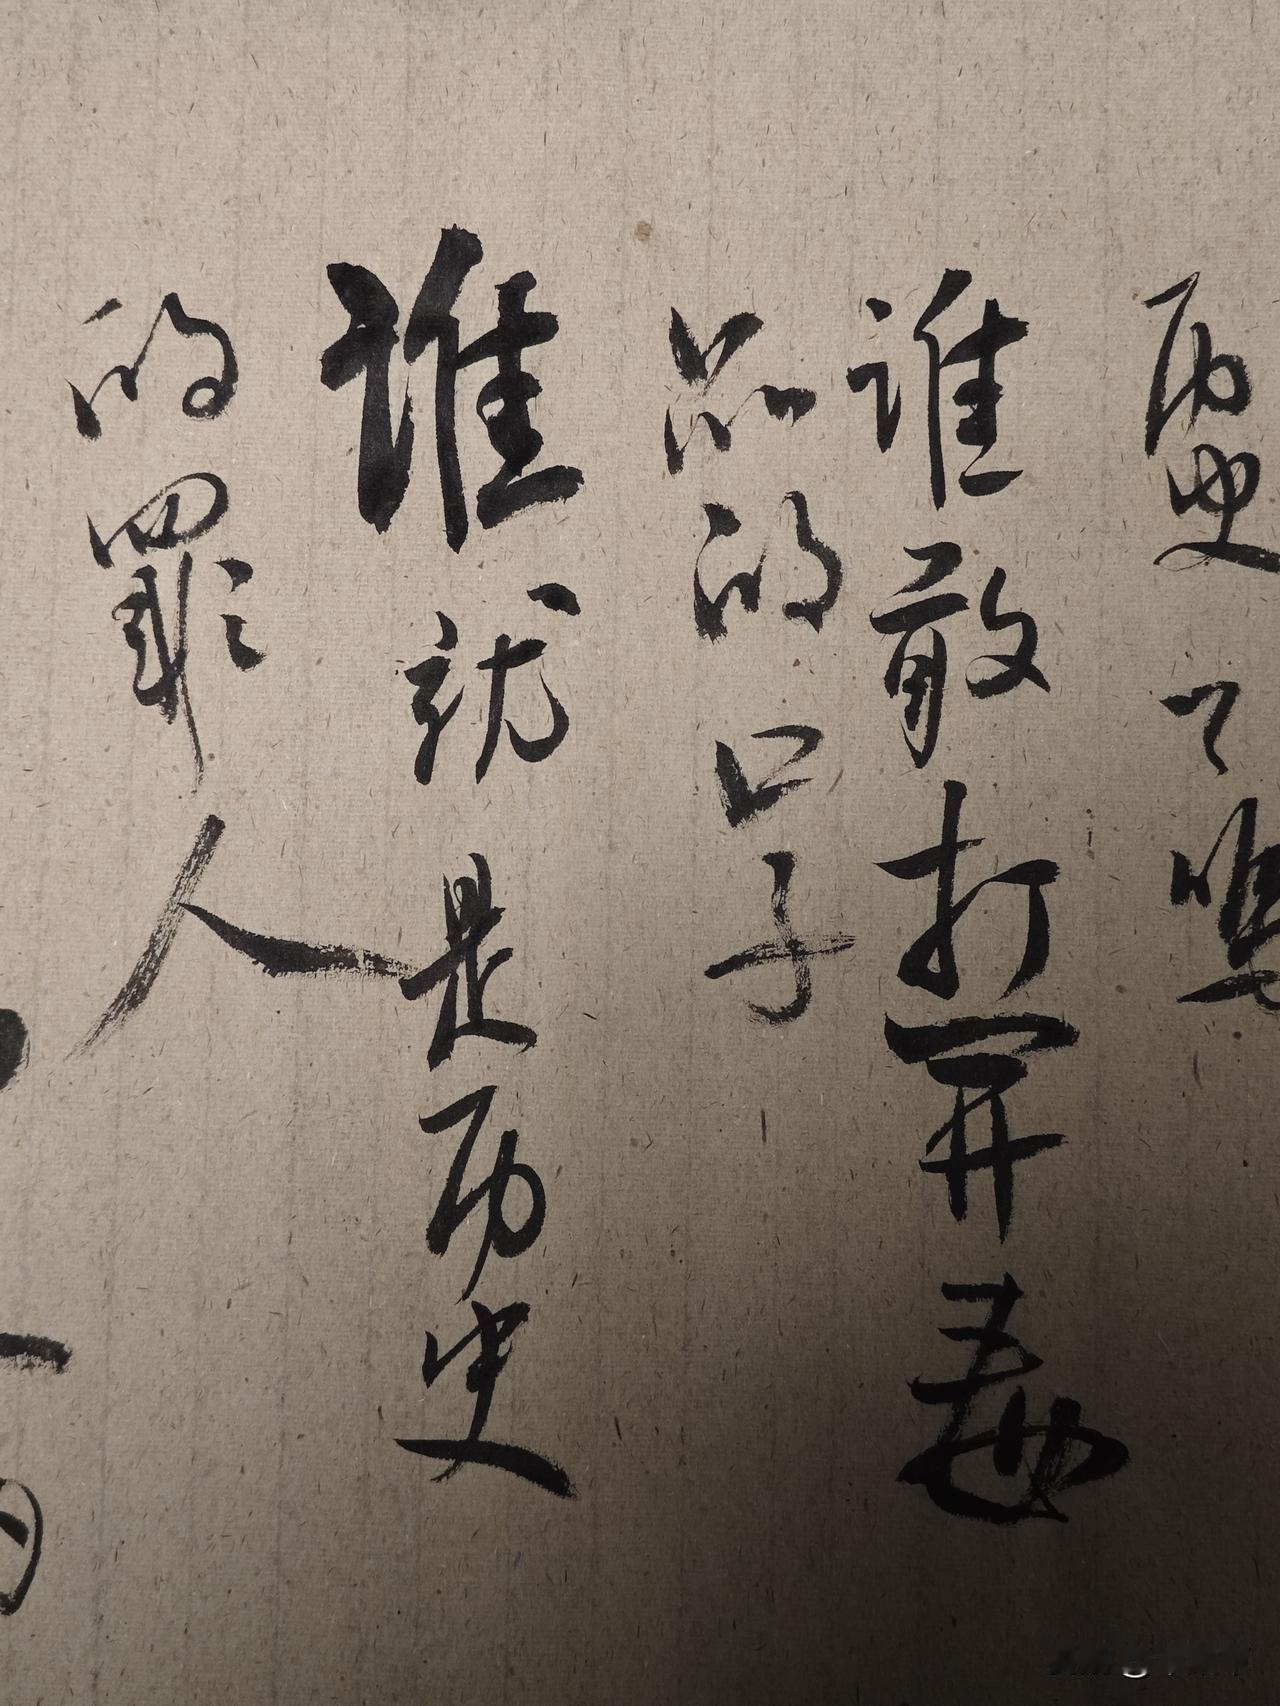 历史之鸣
谁敢打开毒
品的口子
谁就是历史
的罪人